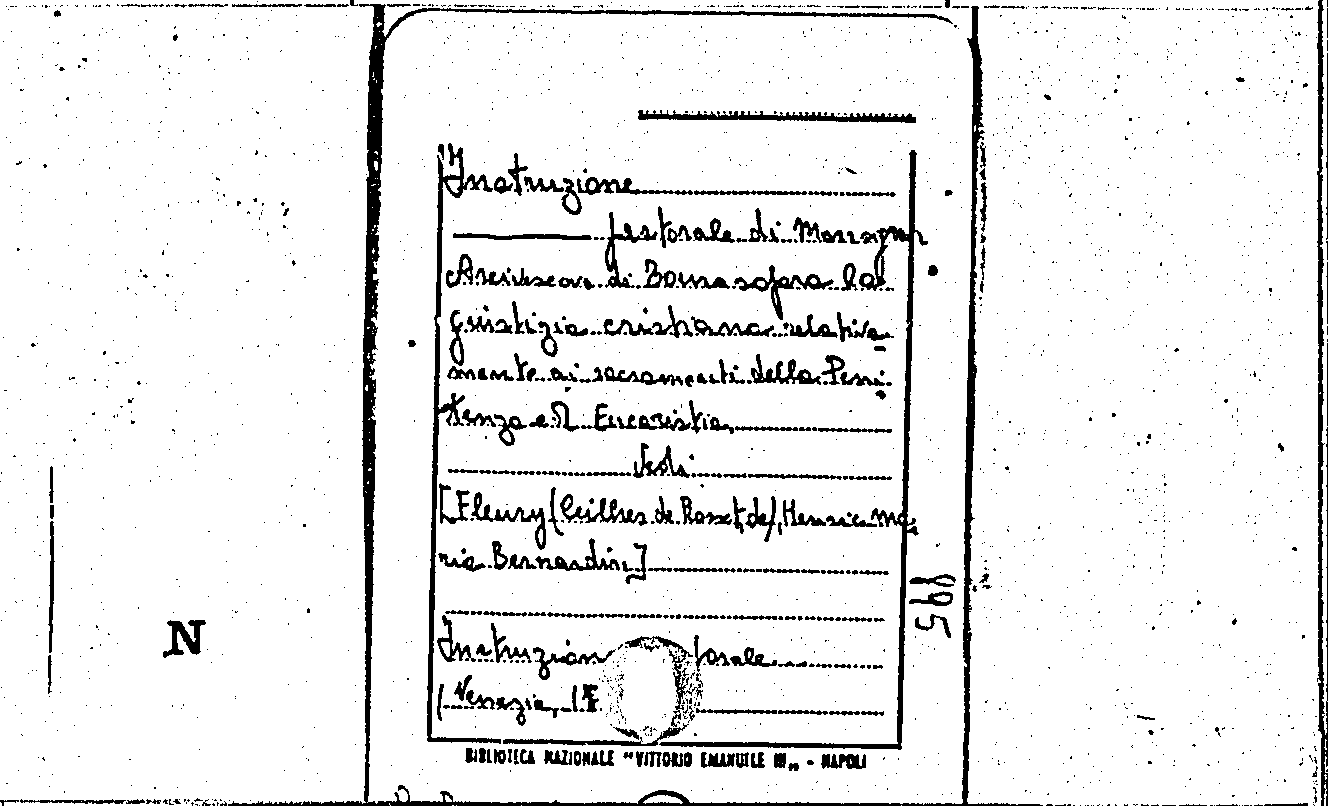 Instruzione
pastorale di Monsignor
Arcivescovo di Tours sopra la
giustizia cristiana relativa-
mente ai sacramenti della Peni-
tenza e Eucaristia.
Vedi
[Fleury (Ceilhes de Rosset, de), Henrico Ma-
ria Bernardin]
Instruzion torale
(Venezia, 1
895
N
BIBLIOTECA NAZIONALE "VITTORIO EMANUELE III„ - NAPOLI